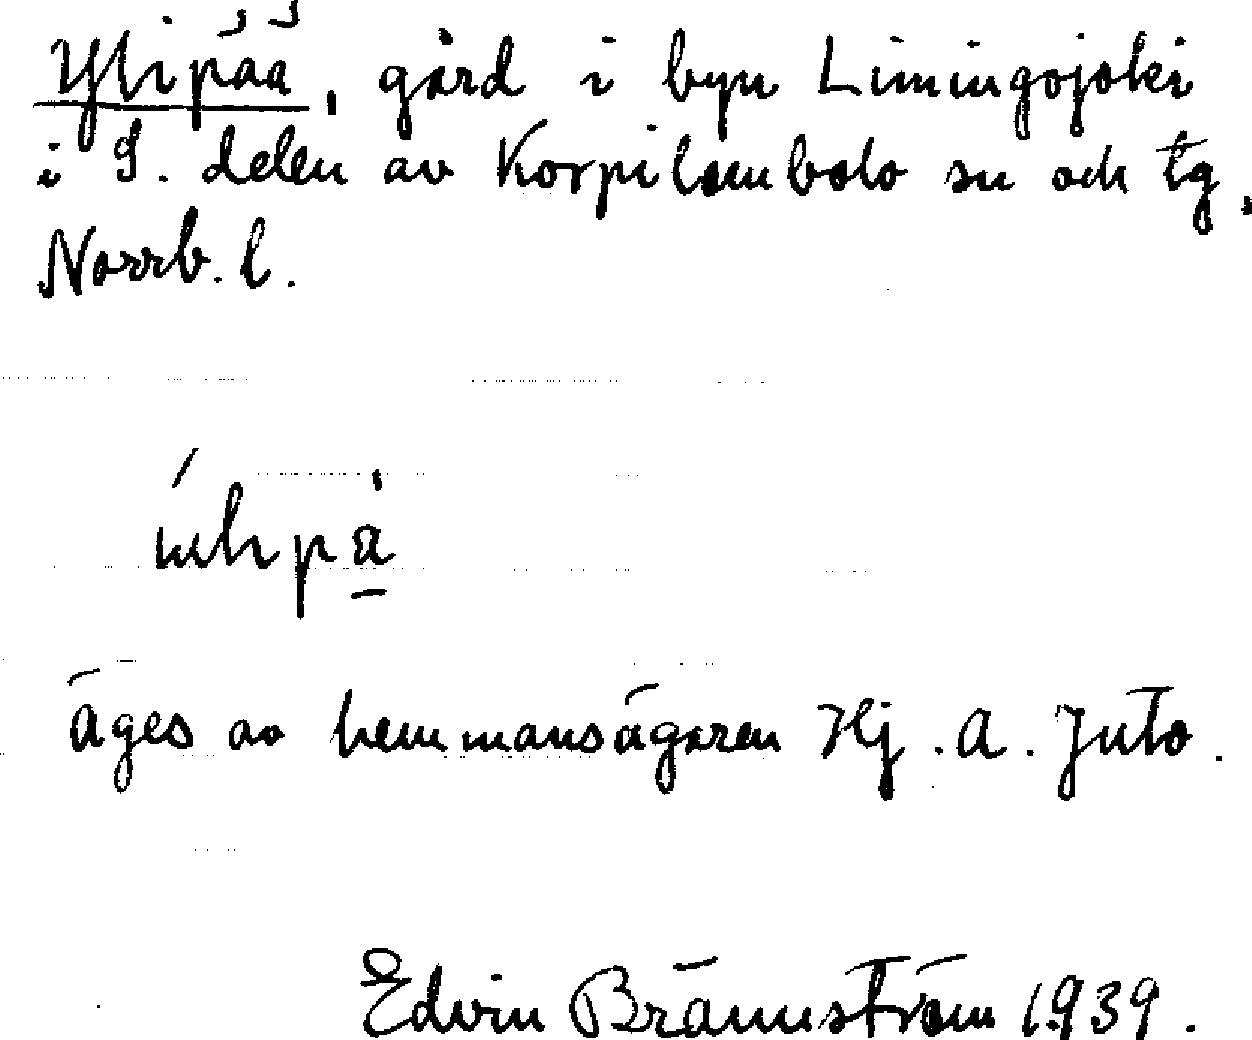 Ylipää, gård i byn Limingojoki
i S. delen av Korpilombolo sn och tg,
Norrb. l.
äges av hemmansägaren Hj. A. Juto.
Edvin Brännström 1939.